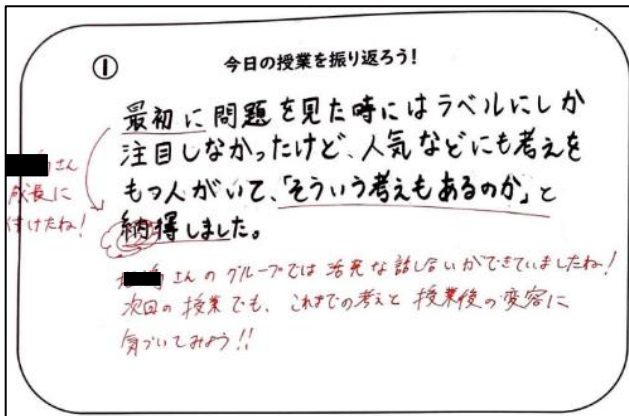 ① 今日の授業を振り返ろう!
最初に問題を見た時にはラベルにしか
注目しなかったけど、人気などにも考えを
もつ人がいて、「そういう考えもあるのか」と
納得しました。
さん
成長に
付けたね!
さんのグループでは活発な話し合いができていましたね!
次回の授業でも、これまでの考えと授業後の変容に
気づいてみよう!!